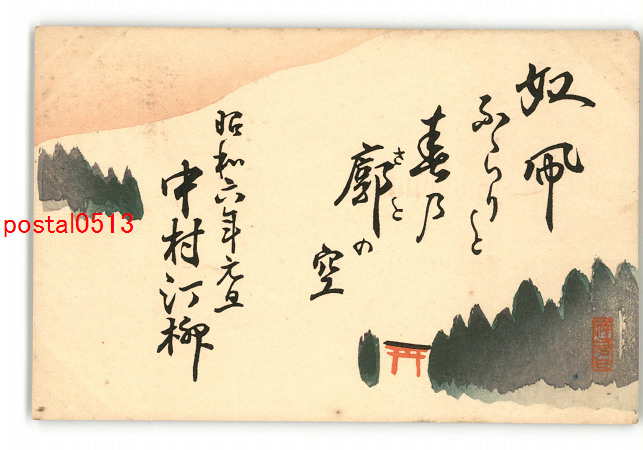 奴凧
ふらりと
春乃
廓の
さと
空
昭和六年元旦
中村汀柳
postal0513